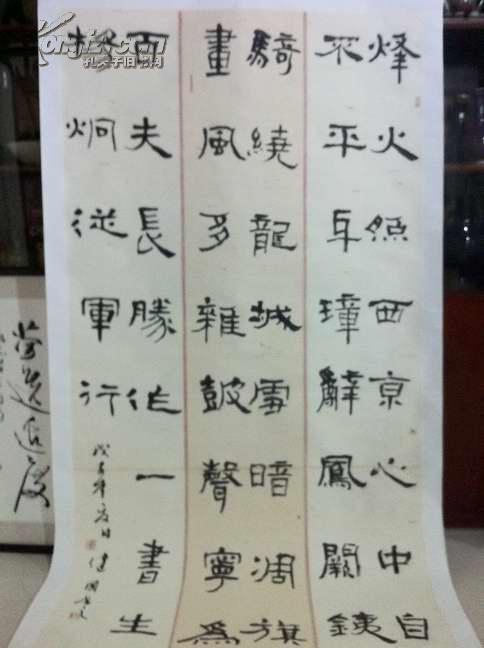 烽火照西京心中自
不平牙璋辭鳳闕鐵
騎繞龍城雪暗凋旗
畫風多雜鼓聲寧為
百夫長勝作一書生
楊炯從軍行
戊子年夏日
孔夫子旧书网